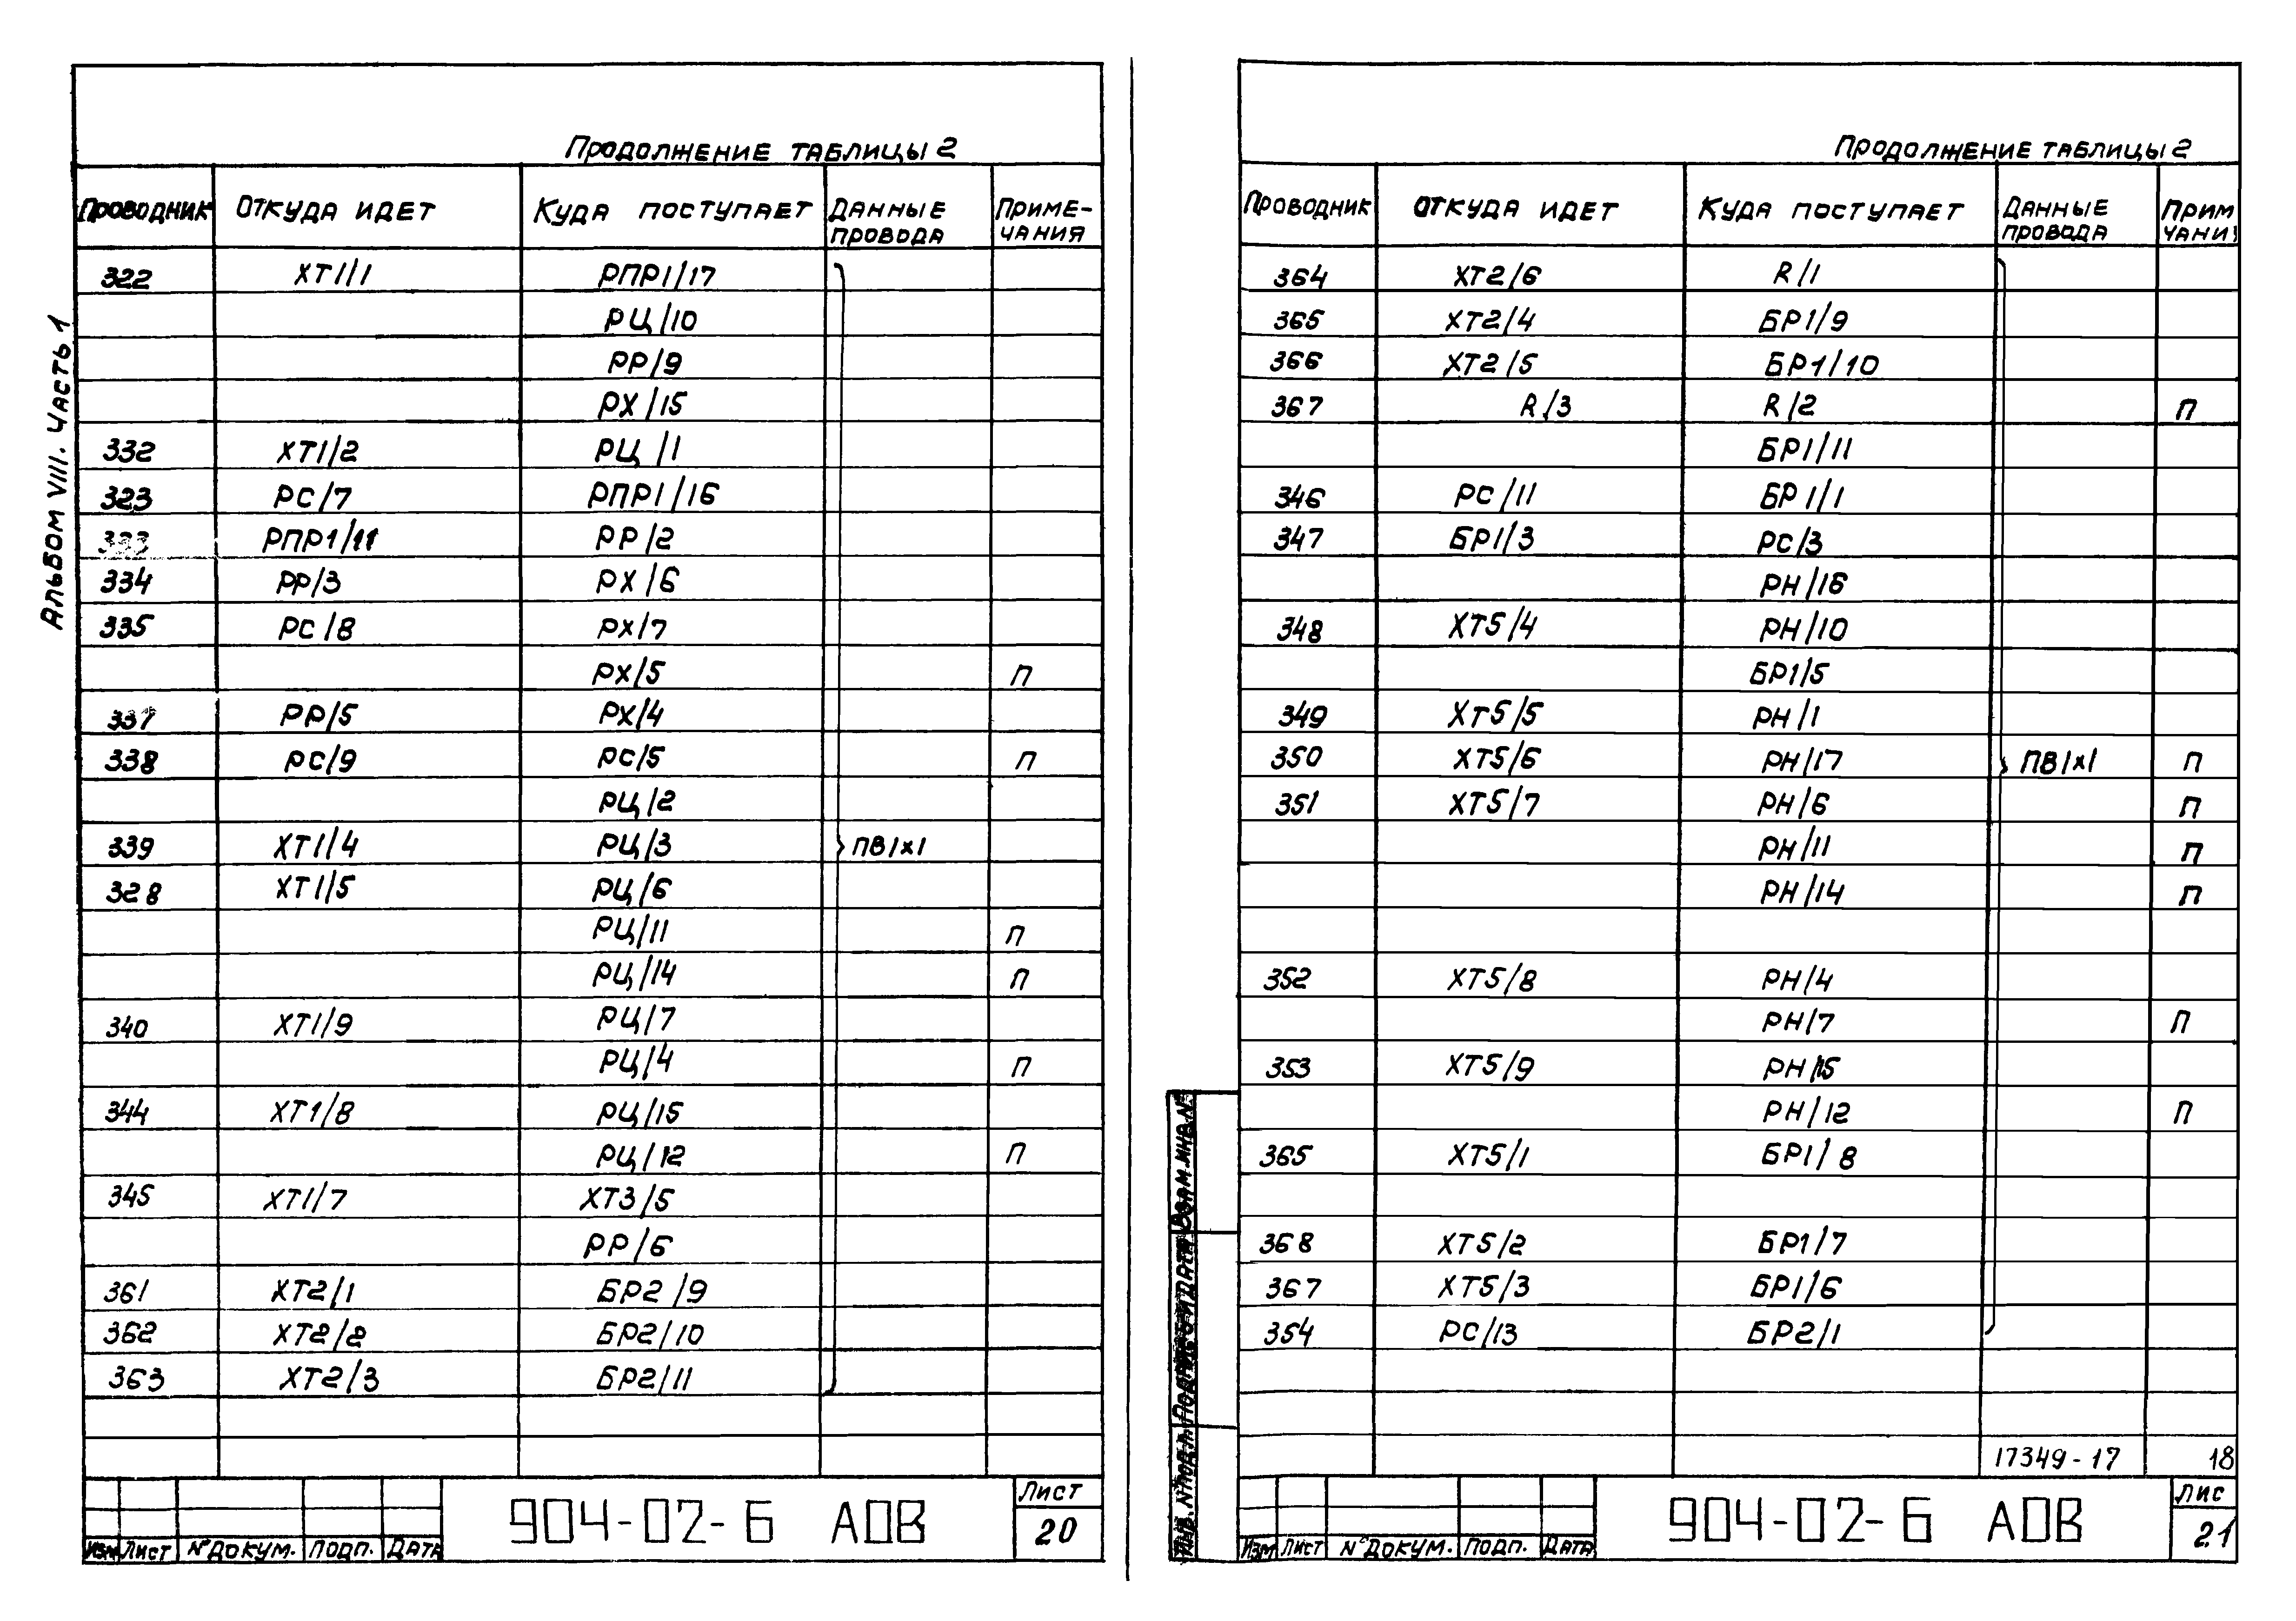 Альбом VIII. Часть 1
Продолжение таблицы 2
Проводник Откуда идет Куда поступает Данные провода Примечания
322 ХТ1/1 РПР1/17
РЦ/10
РР/9
РХ/15
332 ХТ1/2 РЦ/1
323 РС/7 РПР1/16
333 РПР1/11 РР/2
334 РР/3 РХ/6
335 РС/8 РХ/7
РХ/5 П
337 РР/5 РХ/4
338 РС/9 РС/5 П
РЦ/2
339 ХТ1/4 РЦ/3 ПВ1х1
328 ХТ1/5 РЦ/6
РЦ/11 П
РЦ/14 П
340 ХТ1/9 РЦ/7
РЦ/4 П
344 ХТ1/8 РЦ/15
РЦ/12 П
345 ХТ1/7 ХТ3/5
РР/6
361 ХТ2/1 БР2/9
362 ХТ2/2 БР2/10
363 ХТ2/3 БР2/11
Изм Лист № докум. Подп. Дата
904-02-6 АОВ
Лист
20
Продолжение таблицы 2
Проводник Откуда идет Куда поступает Данные провода Прим чани
364 ХТ2/6 R/1
365 ХТ2/4 БР1/9
366 ХТ2/5 БР1/10
367 R/3 R/2 П
БР1/11
346 РС/11 БР1/1
347 БР1/3 РС/3
РН/16
348 ХТ5/4 РН/10
БР1/5
349 ХТ5/5 РН/1
350 ХТ5/6 РН/17 ПВ1х1 П
351 ХТ5/7 РН/6 П
РН/11 П
РН/14 П
352 ХТ5/8 РН/4
РН/7 П
353 ХТ5/9 РН/15
РН/12 П
365 ХТ5/1 БР1/8
368 ХТ5/2 БР1/7
367 ХТ5/3 БР1/6
354 РС/13 БР2/1
17349-17 18
Инв. № подл. Подпись и дата Взам. инв. №
Изм Лист № докум. Подп. Дата
904-02-6 АОВ
Лис
21